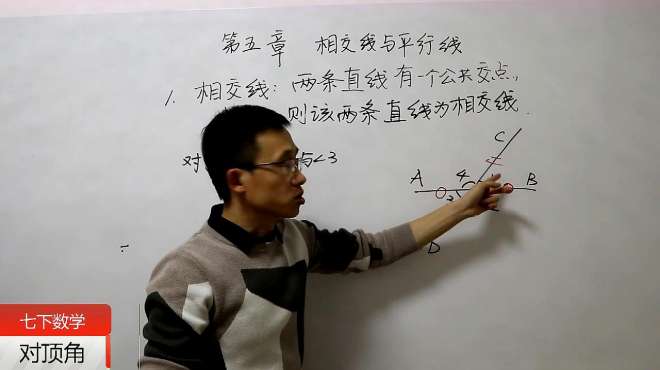 第五章 相交线与平行线
1. 相交线：两条直线有一个公共交点，
则该两条直线为相交线.
对
与∠3
C
A
4
B
2
D
七下数学
对顶角